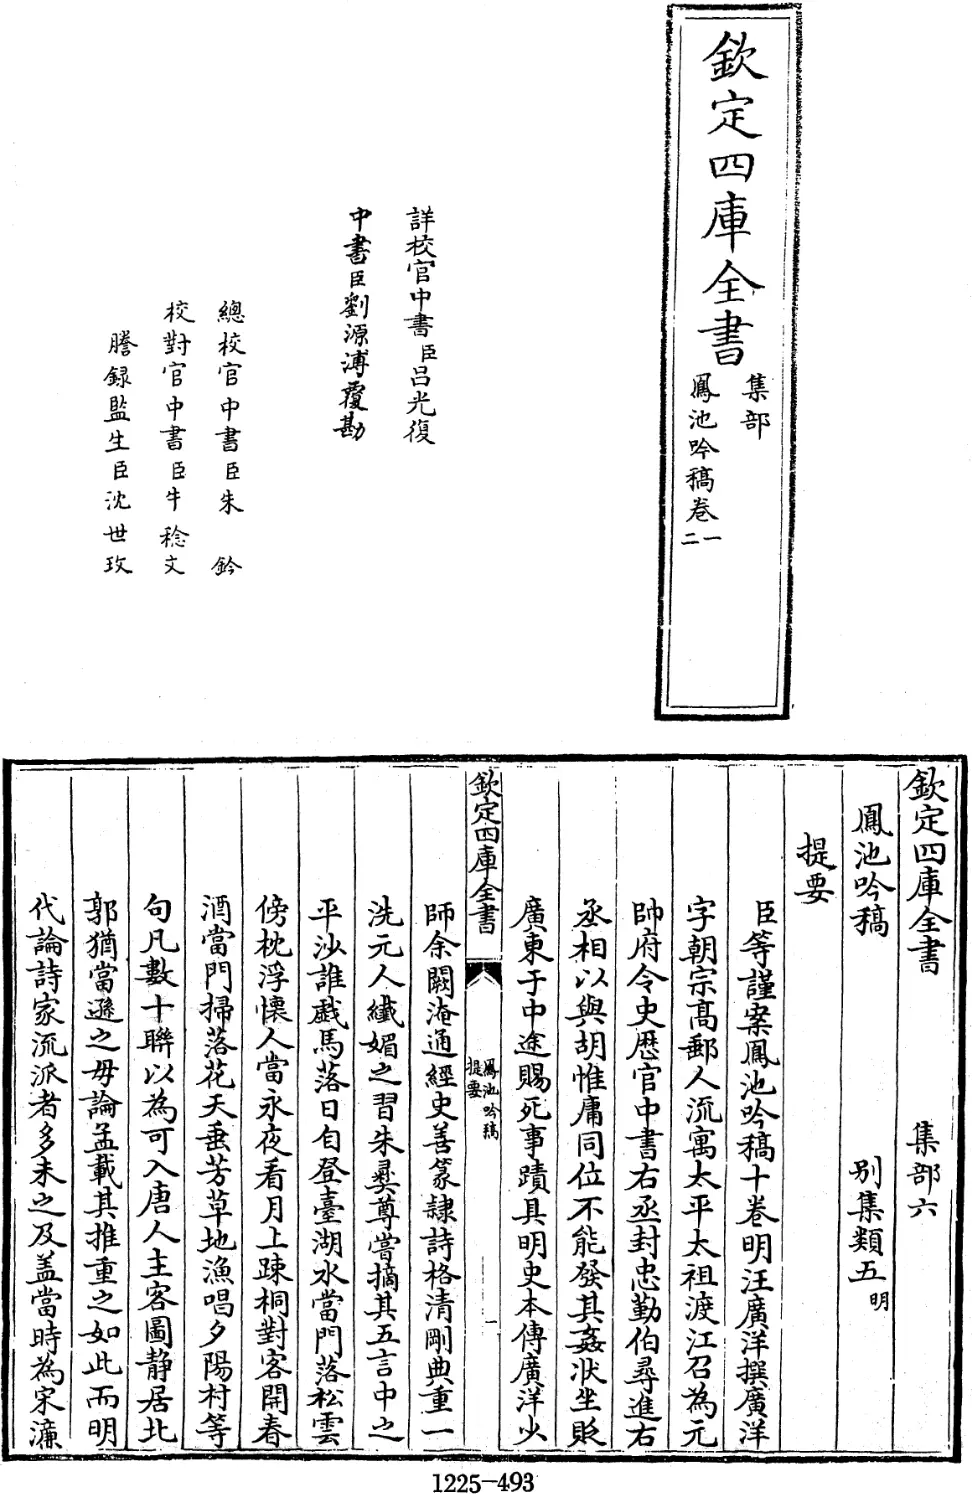 欽定四庫全書
集部
鳳池吟稿卷一二
詳校官中書臣吕光復
中書臣劉源溥覆勘
總校官中書臣朱鈐
校對官中書臣牛稔文
謄録監生臣沈世玫
欽定四庫全書 集部六
鳳池吟稿 别集類五明
提要
臣等謹案鳳池吟稿十卷明汪廣洋撰廣洋
字朝宗髙郵人流寓太平太祖渡江召為元
帥府令史歴官中書右丞封忠勤伯尋進右
丞相以與胡惟庸同位不能發其姦狀坐貶
廣東于中途賜死事蹟具明史本傳廣洋少
欽定四庫全書
鳳池吟稿
提要
一
師余闕淹通經史善篆隷詩格清剛典重一
洗元人纎媚之習朱彛尊嘗摘其五言中之
平沙誰戲馬落日自登臺湖水當門落松雲
傍枕浮懐人當永夜看月上踈桐對客開春
酒當門掃落花天垂芳草地漁唱夕陽村等
句凡數十聯以為可入唐人主客圖静居北
郭猶當遜之毋論孟載其推重之如此而明
代論詩家流派者多未之及盖當時為宋濂
1225-493